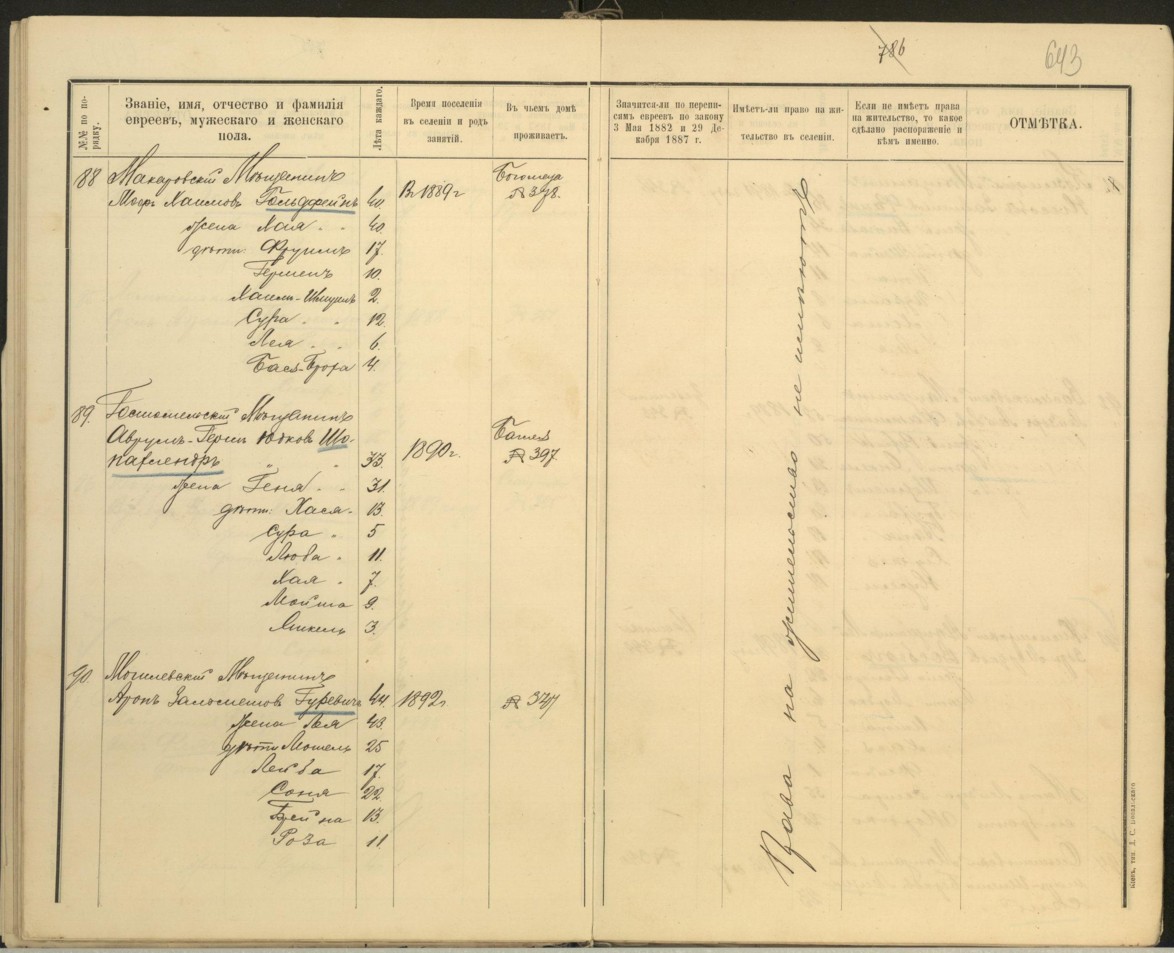 786
643
№№ по по-
рядку.
Званіе, имя, отчество и фамилія
евреевъ, мужескаго и женскаго
пола.
Лѣта каждаго.
Время поселенія
въ селеніи и родъ
занятій.
Въ чьемъ домѣ
проживаетъ.
Значится-ли по перепи-
сямъ евреевъ по закону
3 Мая 1882 и 29 Де-
кабря 1887 г.
Имѣетъ-ли право на жи-
тельство въ селеніи.
Если не имѣетъ права
на жительство, то какое
сдѣлано распоряженіе и
кѣмъ именно.
ОТМѢТКА.
88 Макаровскій Мѣщанинъ
Хаимовъ Гольдфейнъ 44 Въ 1889 г
жена Хая 40.
дѣти: Фруимъ 17.
Гершенъ 10.
Хаимъ-Шмуель 2.
Сура 12
Лея 6.
Бася-Брока 4.
89. Гостомельскій Мѣщанинъ
Аврумъ-Герш Юдковъ Шо-
33. 1890 г. № 397
жена Геня 31.
дѣти: Хася 13.
Сура 5
Люба 11.
Хая 7.
9.
3.
90. Могилевскій Мѣщанинъ
Аронъ Гуревичъ 44. 1892 г №
жена Лея 43.
дѣти Мошель 25
Лейба 17.
Соня 22
Бейна 13.
Роза 11.
Права на жительство не имѣютъ